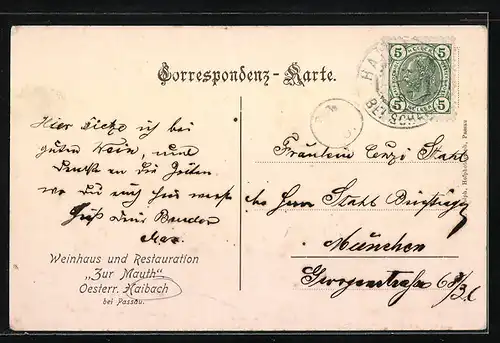 Correspondenz-Karte.
5 5
5 5
HAI
BEI SCHÄR
Hier sitze ich bei
guten Wein, und
denke an die Zeiten
wo Du auch hier warst
Gruß Dein Bruder
Max.
Weinhaus und Restauration
„Zur Mauth“
Oesterr. Haibach
bei Passau.
Fräulein Cenzi Stahl
bei Herrn Stahl
München
Georgenstraße 68/3
Passau